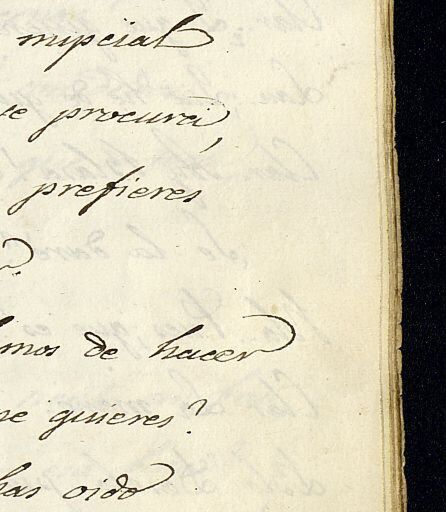 nupcial
te procura,
prefieres
?
lmos de hacer
ue quieres?
has oido